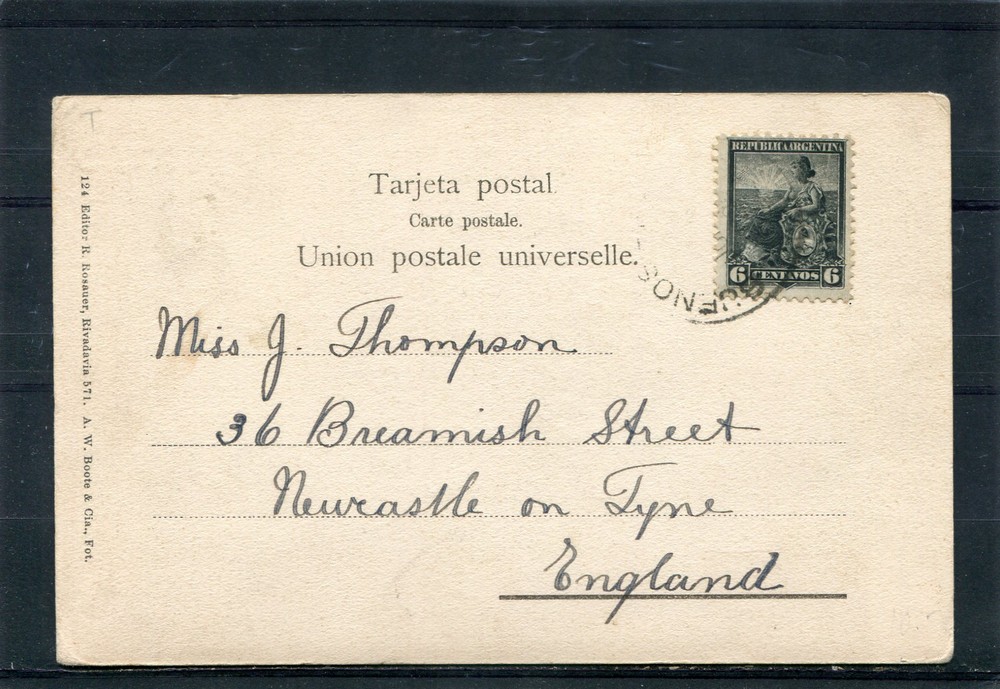 T
REPUBLICA ARGENTINA
6 CENTAVOS 6
BUENOS
Tarjeta postal
Carte postale.
Union postale universelle.
Miss J. Thompson
36 Breamish Street
Newcastle on Tyne
England
124 Editor R. Rosauer, Rivadavia 571. A. W. Boote & Cia., Fot.